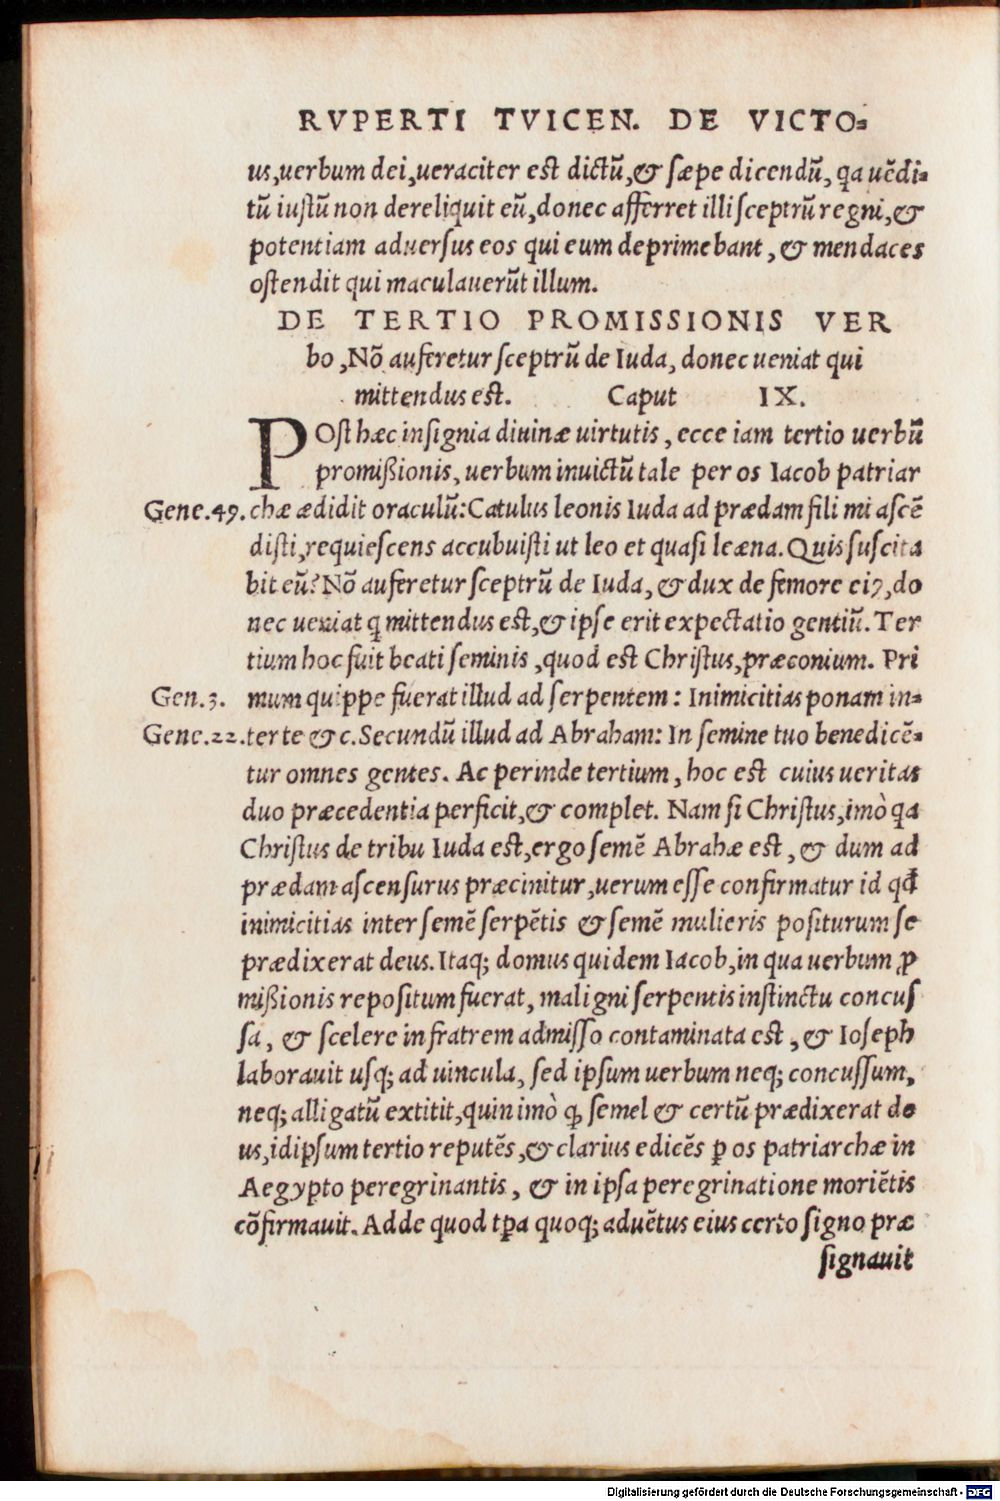 RVPERTI TVICEN. DE VICTO=
us,uerbum dei,ueraciter est dictũ,& sæpe dicendũ, qa uẽdi=
tũ iustũ non dereliquit eũ,donec afferret illi sceptrũ regni,&
potentiam aduersus eos qui eum deprimebant, & mendaces
ostendit qui maculauerũt illum.
DE TERTIO PROMISSIONIS VER
bo, Nõ auferetur sceptrũ de Iuda, donec ueniat qui
mittendus est. Caput IX.
POst hæc insignia diuinæ uirtutis, ecce iam tertio uerbũ
promißionis, uerbum inuictũ tale per os Iacob patriar
Gene.49. chæ ædidit oraculũ: Catulus leonis Iuda ad prædam fili mi ascẽ
disti,requiescens accubuisti ut leo et quasi leæna. Quis suscita
bit eũ? Nõ auferetur sceptrũ de Iuda, & dux de femore eiꝰ,do
nec ueniat q mittendus est,& ipse erit expectatio gentiũ. Ter
tium hoc fuit beati seminis ,quod est Christus,præconium. Pri
Gen.3. mum quippe fuerat illud ad serpentem: Inimicitias ponam in=
Gene.22. ter te & c. Secundũ illud ad Abraham: In semine tuo benedicẽ=
tur omnes gentes. Ac perinde tertium, hoc est cuius ueritas
duo præcedentia perficit,& complet. Nam si Christus,imò qa
Christus de tribu Iuda est,ergo semẽ Abrahæ est, & dum ad
prædam ascensurus præcinitur,uerum esse confirmatur id qđ
inimicitias inter semẽ serpẽtis & semẽ mulieris positurum se
prædixerat deus. Itaq; domus quidem Iacob,in qua uerbum ꝓ
mißionis repositum fuerat, maligni serpentis instinctu concus
sa, & scelere in fratrem admisso contaminata est, & Ioseph
laborauit usq; ad uincula, sed ipsum uerbum neq; concussum,
neq; alligatũ extitit,quin imò ꝙ semel & certũ prædixerat de
us,id ipsum tertio reputẽs,& clarius edicẽs ꝑ os patriarchæ in
Aegypto peregrinantis, & in ipsa peregrinatione moriẽtis
cõfirmauit. Adde quod tꝑa quoq; aduẽtus eius certo signo præ
signauit
Digitalisierung gefördert durch die Deutsche Forschungsgemeinschaft - DFG